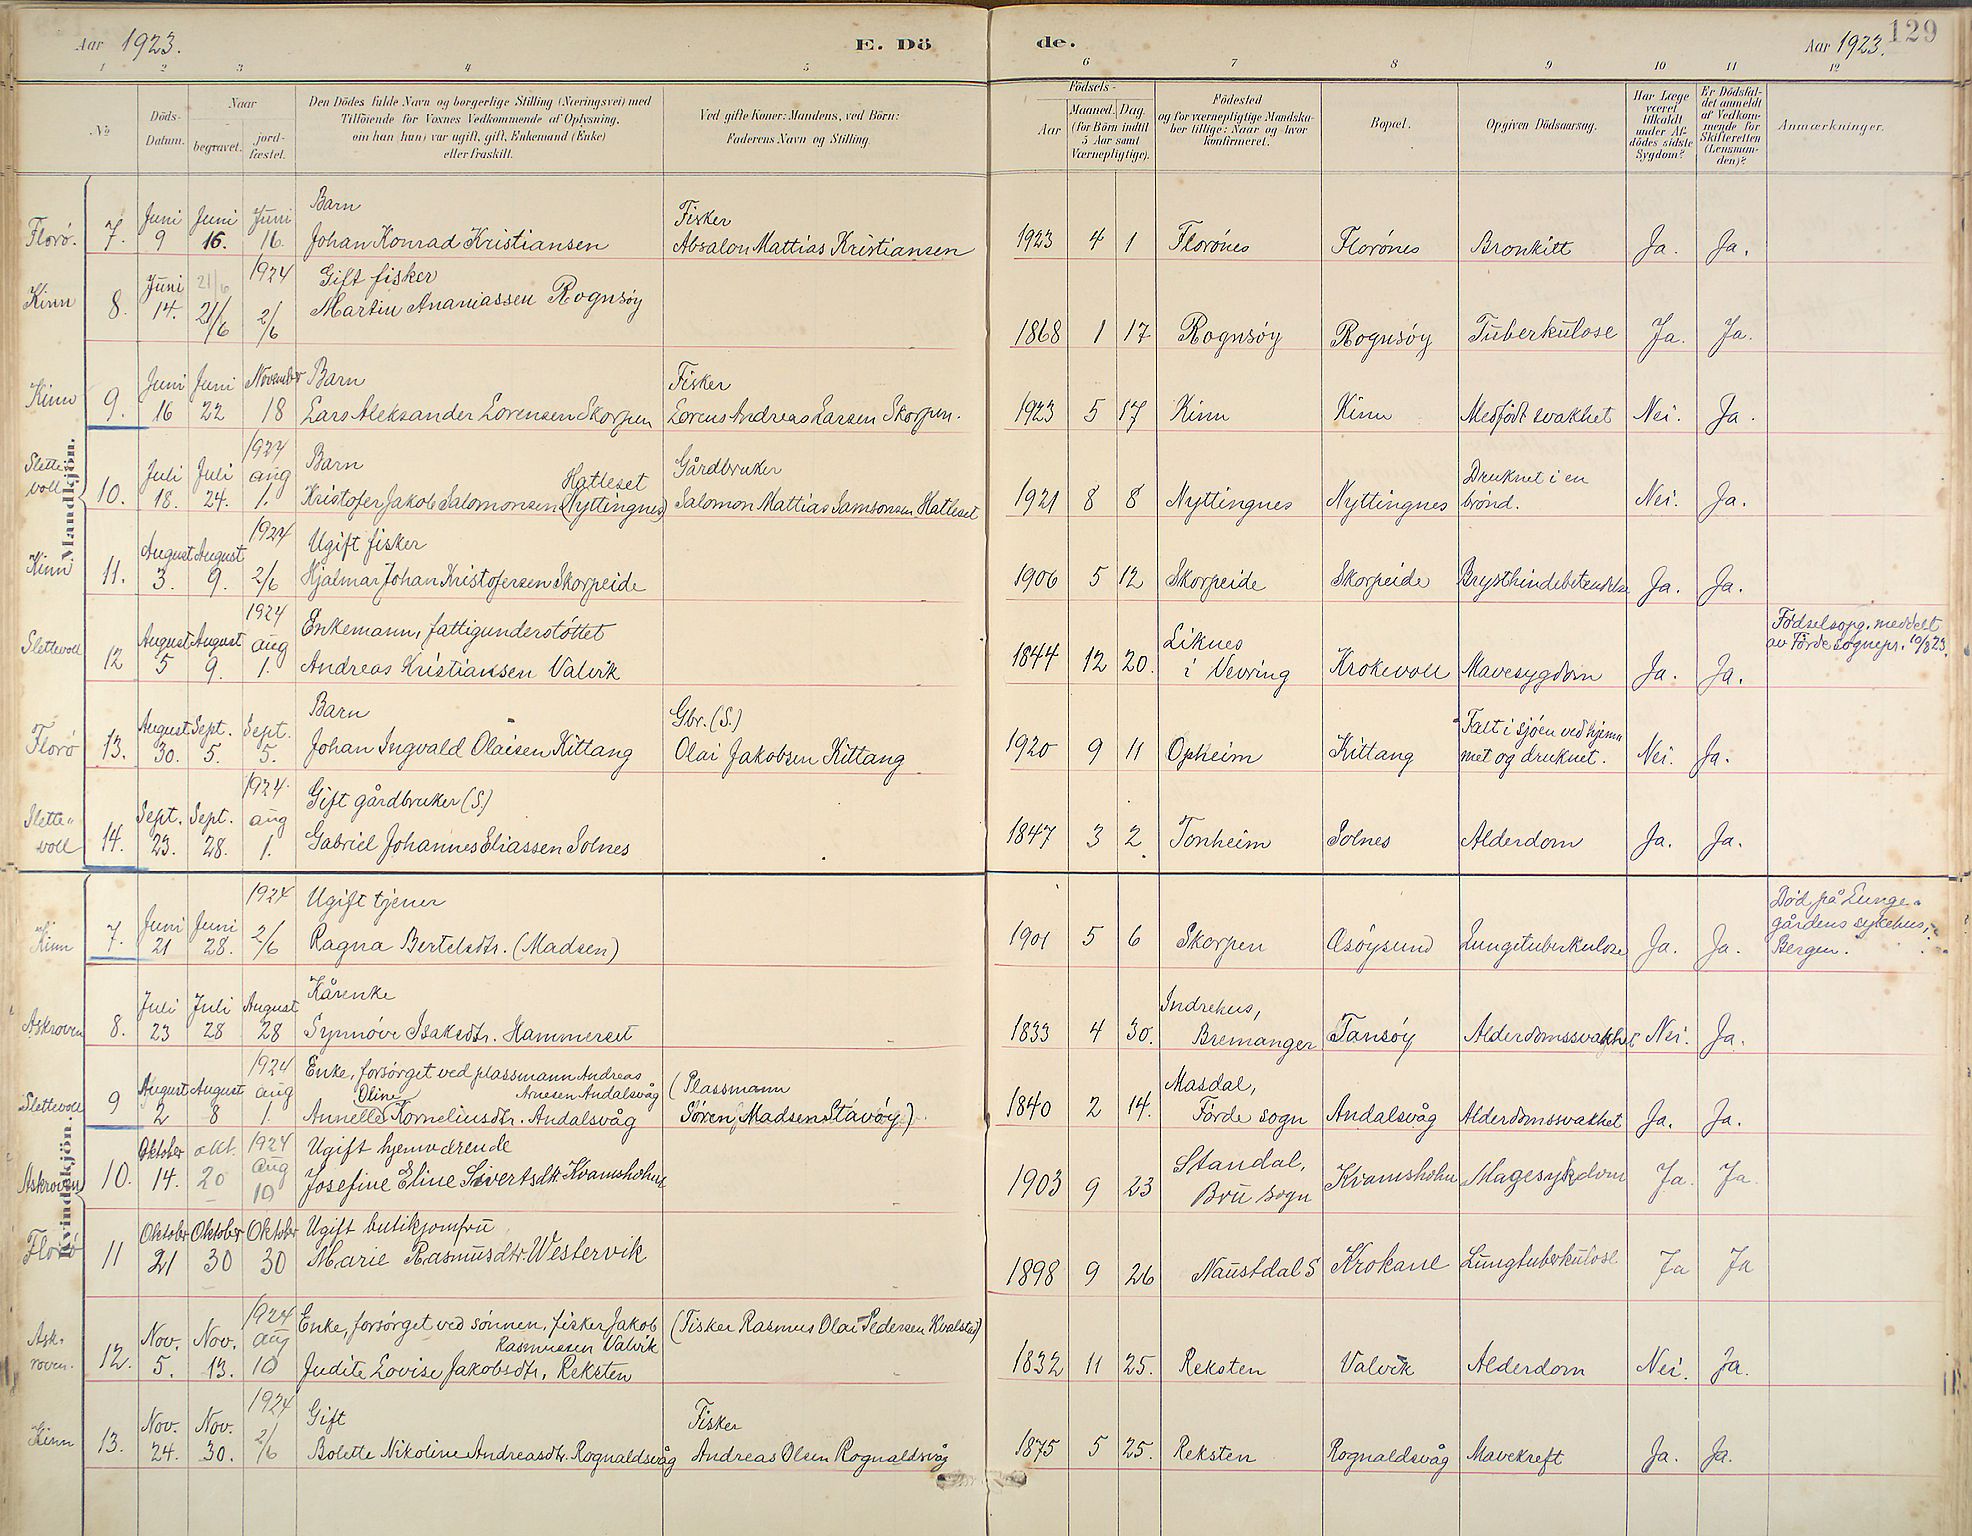 Aar 1923.
E. Dö
de.
Aar 1923.
129
1 2 3 4 5 6 7 8 9 10 11 12
No
Döds-
Datum.
Naar
begravet.
jord-
fæstet.
Den Dödes fulde Navn og borgerlige Stilling (Næringsvei) med
Tilföiende for Voxnes Vedkommende af Oplysning,
om han (hun) var ugift, gift, Enkemand (Enke)
eller fraskilt.
Ved gifte Koner: Mandens, ved Börn:
Faderens Navn og Stilling.
Födsels-
Aar
Maaned. Dag
(for Börn indtil
5 Aar samt
Værnepligtige).
Födested
og for værnepligtige Mandska-
ber tillige: Naar og hvor
konfirmeret.
Bopæl.
Opgiven Dödsaarsag.
Har Læge
været
tilkaldt
under Af-
dödes sidste
Sygdom?
Er Dödsfal-
det anmeldt
af Vedkom-
mende for
Skifteretten
(Lensman-
den)?
Anmærkninger.
Mandkjön.
Juni Juni Juni Barn Fisker
Florø. 7. 9 16. 16. Johan Konrad Kristiansen Absalon Mattias Kristiansen 1923 4 1 Florónes Florónes Bronkitt Ja. Ja.
Juni 21/6 1924 Gift fisker
Kinn 8. 14. 21/6 2/6 Martin Ananiassen Rognsóy 1868 1 17 Rognsóy Rognsóy Tuberkulose Ja. Ja.
Juni Juni November Barn Fisker
Kinn 9. 16 22 18 Lars Aleksander Lorensen Skorpen Lorens Andreas Larsen Skorpen. 1923 5 17 Kinn Kinn Medfödt svakhet Nei. Ja.
Slette- Juli Juli 1924 aug Barn Hatleset Gårdbruker Druknet i en
voll 10. 18. 24. 1. Kristofer Jakob Salomonsen (Nyttingnes) Salomon Mattias Samsonsen Hatleset 1921 8 8 Nyttingnes Nyttingnes brönd. Nei. Ja.
August August 1924 Ugift fisker
Kinn 11. 3. 9. 2/6 Hjalmar Johan Kristofersen Skorpeide 1906 5 12 Skorpeide Skorpeide Brysthindebetendelse Ja. Ja.
August August 1924 aug Enkemann, fattigunderstóttet Liknes Födselsopg. meddelt
Slettevoll 12 5 9. 1. Andreas Kristiansen Valvik 1844 12 20. i Vevring Krokevoll Mavesygdom Ja. Ja. av Förde sognepr. 10/8 23.
August Sept. Sept. Barn Gbr. (S.) Falt i sjóen ved hjem
Florø 13. 30. 5. 5. Johan Ingvald Olaisen Kittang Olai Jakobsen Kittang 1920 9 11 Opheim Kittang met og druknet. Nei. Ja.
Slette- Sept. Sept. 1924 aug Gift gårdbruker (S.)
voll 14. 23. 28. 1. Gabriel Johannes Eliassen Solnes 1847 3 2 Tonheim Solnes Alderdom Ja. Ja.
Kvindekjön.
Juni Juni 1924 Ugift tjener Död på Lunge-
Kinn 7. 21 28. 2/6 Ragna Bertelsdtr. (Madsen) 1901 5 6 Skorpen Osóysund Lungetuberkulose Ja. Ja. gårdens sykehus,
Bergen.
Juli Juli August Kårenke Indrehus,
Askroven 8. 23 28 28 Synnóve Isaksdtr. Hammerset 1833 4 30. Bremanger Tansóy Alderdomssvakhet Nei. Ja.
August August 1924 aug Enke, forsórget ved plassmann Andreas (Plassmann Masdal,
Oline Arnesen Andalsvåg
Slettevoll 9 2 8 1. Annelle Korneliusdtr. Andalsvåg Sóren Madsen Stavóy) 1840 2 14. Fórde sogn Andalsvåg Alderdomssvakhet Ja. Ja.
Oktober okt. 1924 aug Ugift hjemværende Standal,
Askroven 10. 14. 20 10 Josefine Eline Sivertsdtr. Kvamsholm 1903 9 23 Bru sogn Kvamsholm Magesykdom Ja. Ja
Oktober Oktober Oktober Ugift butikjomfru
Florø 11 21 30 30 Marie Rasmusdtr Westervik 1898 9 26 Naustdal S Krokane Lungtuberkulose Ja Ja
Ask- Nov. Nov. 1924 aug Enke, forsórget ved sónnen, fisker Jakob (Fisker Rasmus Olai Pedersen Kvalstad)
Rasmussen Valvik
roven. 12. 5. 13. 10 Judite Lovise Jakobsdtr. Reksten 1832 11 25. Reksten Valvik Alderdom Nei. Ja.
Nov. Nov. 1924 Gift Fisker
Kinn 13. 24. 30. 2/6 Bolette Nikoline Andreasdtr. Rognaldsvåg Andreas Olsen Rognaldsvåg 1875 5 25. Reksten Rognaldsvåg Mavekreft Ja. Ja.